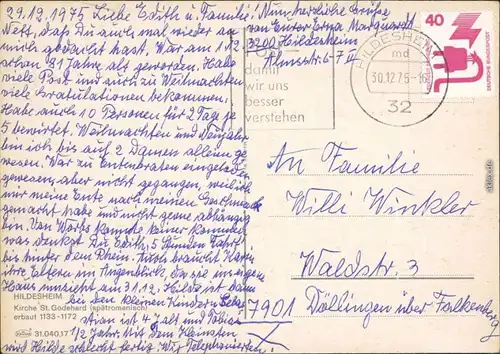 29.12.1975 Liebe Edith u. Familie!
Nett, daß Du auch mal wieder an
mich gedacht hast. War am 1.12.
schon 81 Jahre alt geworden. Habe
viele Post und auch zu Weihnachten
viele Gratulationen bekommen.
Habe auch 10 Personen für 2 Tage je
5 bewirtet. Weihnachten und Neujahr
bin ich bis auf 2 Damen alleine ge-
wesen. War zu Entenbraten eingeladen
gewesen, aber nicht gegangen, weil ich
mir meine Ente nach meinem Geschmack
gemacht habe und nicht gerne abhängig
bin. Von konnte keiner kommen
was denkst Du Edith, 5 Stunden Fahrt
bis hinter dem Rhein. Auch braucht Karin
ihre Eltern im Augenblick. Da sie im eigenen
Haus umzieht am 31.12. Hilde ist dann
bei den kleinen Kindern.
ist 4 J alt und Tobias
1/2 Jahre. Mit dem Kleinsten
wird Hilde schlecht fertig. Wir Telephonierten.
Nun herzliche Grüße
von Eurer Erna Marquardt
3200 Hildesheim
damit
wir uns
besser
verstehen
HILDESHEIM
md
30.12.75-16
32
40
DEUTSCHE BUNDESPOST
An Familie
Willi Winkler
Waldstr. 3
7901 Döllingen über Falkenberg
HILDESHEIM
Kirche St. Godehard (spätromanisch)
erbaut 1133-1172
31.040.17